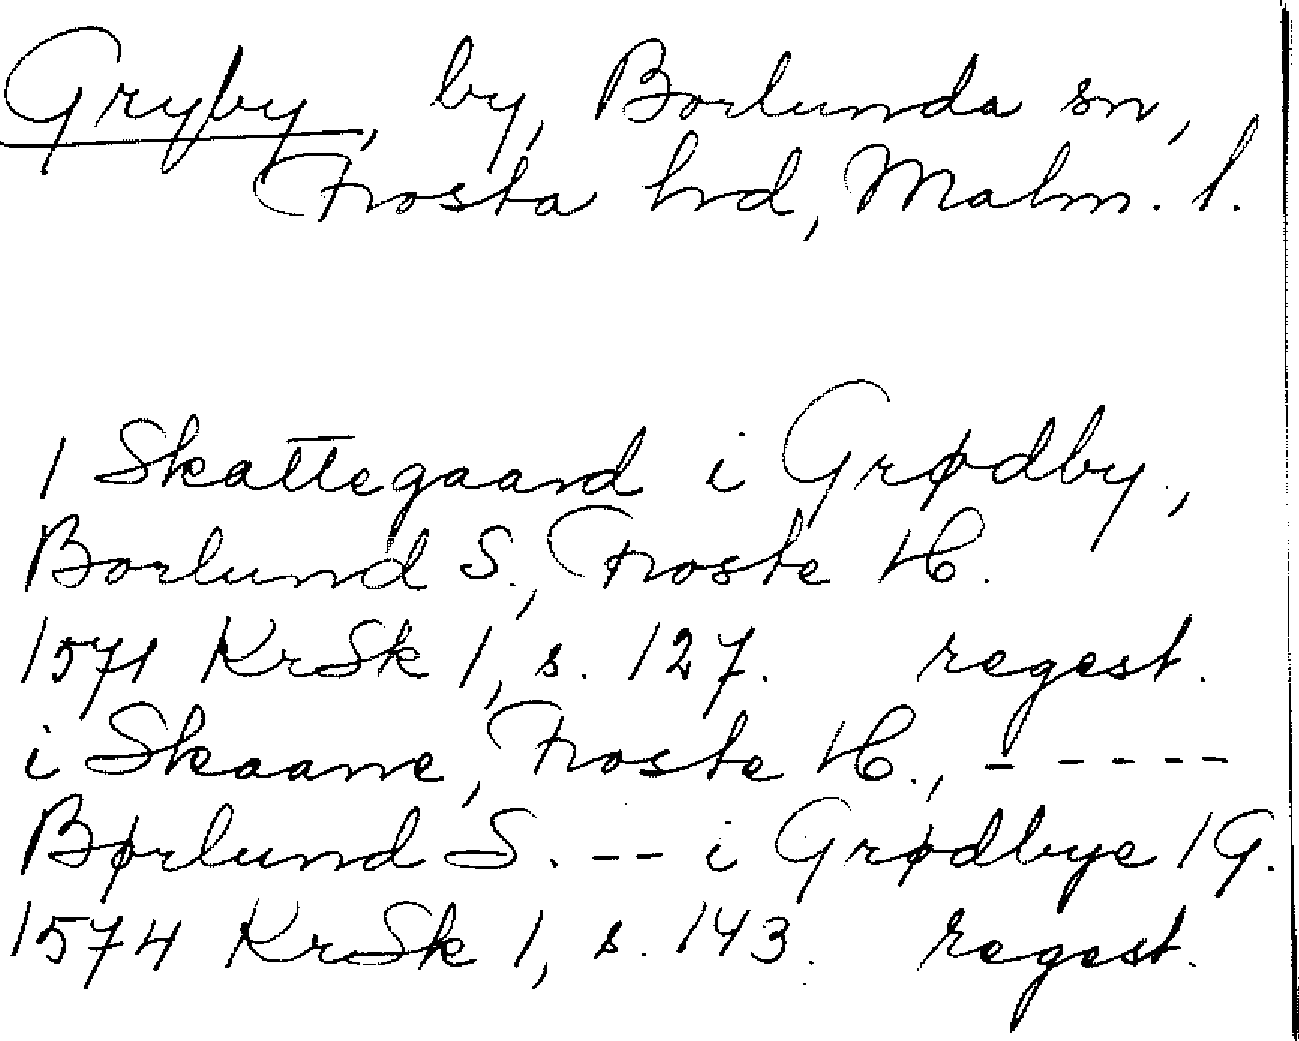 Gryby, by, Borlunda sn,
Frosta hd, Malm. l.
1 Skattegaard i Grødby.,
Borlund S., Froste H.
1571 KrSk 1, s. 127. regest.
i Skaane, Froste H., - - - - -
Børlund S. - - - i Grødbye 1 G.
1574 KrSk 1, s. 143. regest.